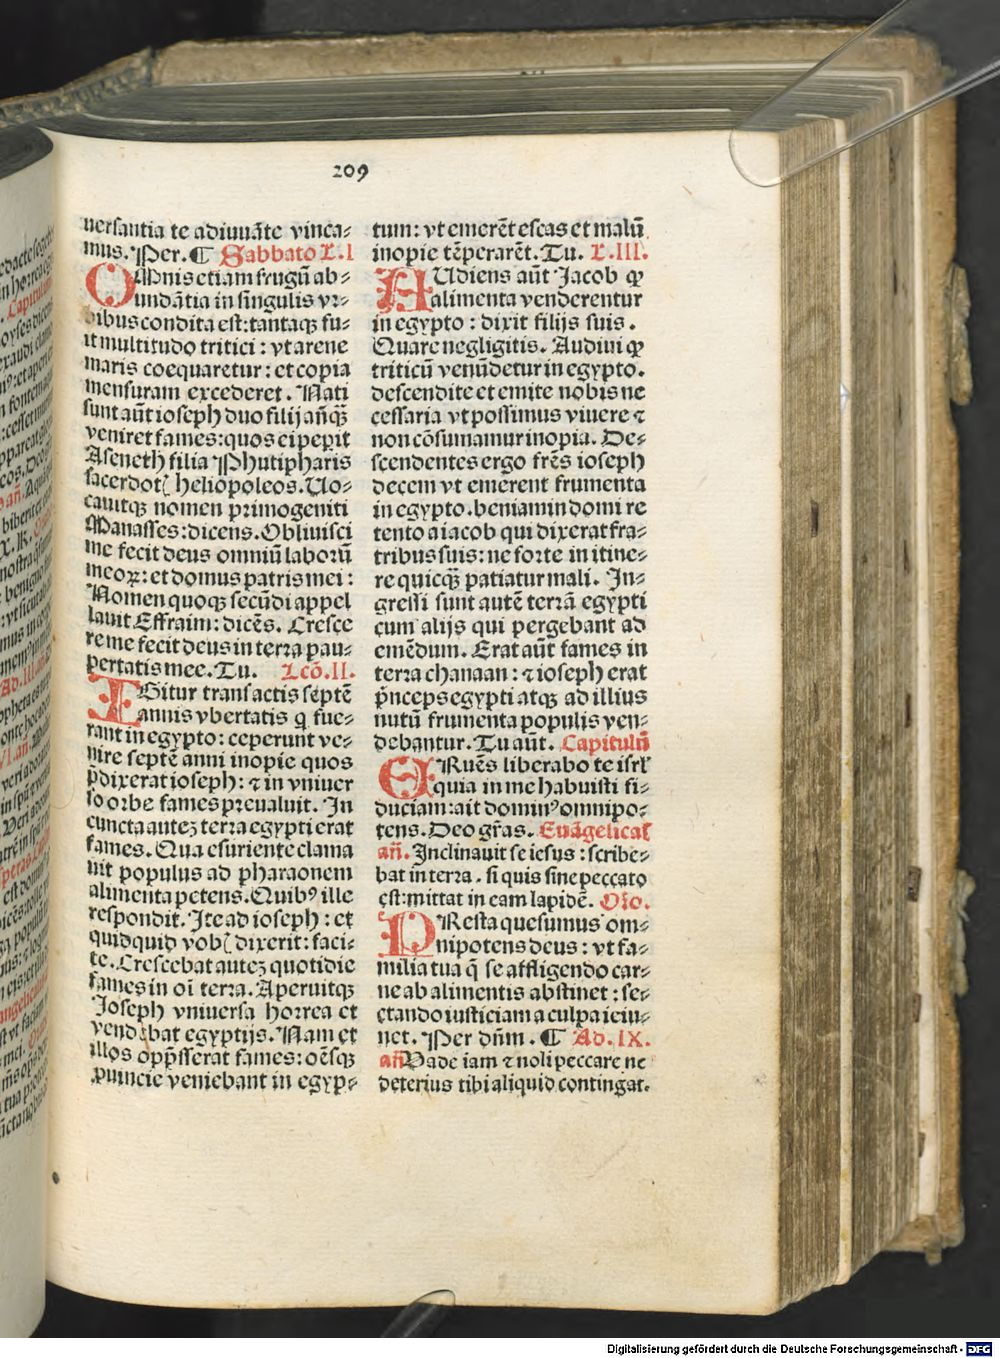 209
versantia te adiuuāte vinca-
mus. Per. ¶ Sabbato L. I
OMnis etiam frugū ab-
undātia in singulis vr-
bibus condita est: tantaqꝫ fu-
it multitudo tritici: vt arene
maris coequaretur: et copia
mensuram excederet. Nati
sunt aūt ioseph duo filij añqꝫ
veniret fames: quos ei pepit
Aseneth filia Phutipharis
sacerdotꝭ heliopoleos. Uo-
cauitqꝫ nomen primogeniti
Manasses: dicens. Obliuisci
me fecit deus omniū laborū
meoꝝ: et domus patris mei:
Nomen quoqꝫ secūdi appel
lauit Effraim: dicēs. Cresce
re me fecit deus in terra pau-
pertatis mee. Tu. Lcō. II.
IGitur transactis septē
annis vbertatis q̄ fue-
rant in egypto: ceperunt ve-
nire septē anni inopie quos
p̄dixerat ioseph: ⁊ in vniuer
so orbe fames preualuit. In
cuncta auteꝫ terra egypti erat
fames. Qua esuriente clama
uit populus ad pharaonem
alimenta petens. Quibꝰ ille
respondit. Ite ad ioseph: et
quidquid vobꝭ dixerit: faci-
te. Crescebat auteꝫ quotidie
fames in oī terra. Aperuitqꝫ
Ioseph vniuersa horrea et
vendebat egyptijs. Nam et
illos opp̄sserat fames: oēsqꝫ
ꝓuincie veniebant in egyp-
tum: vt emerēt escas et malū
inopie tēperarēt. Tu. L. III.
AUdiens aūt Jacob ꝙ
alimenta venderentur
in egypto: dixit filijs suis.
Quare negligitis. Audiui ꝙ
triticū venūdetur in egypto.
descendite et emite nobis ne
cessaria vt possimus viuere ⁊
non cōsumamur inopia. De-
scendentes ergo frēs ioseph
decem vt emerent frumenta
in egypto. beniamin domi re
tento a iacob qui dixerat fra-
tribus suis: ne forte in itine-
re quicqꝫ patiatur mali. In-
gressi sunt autē terrā egypti
cum alijs qui pergebant ad
emēdum. Erat aūt fames in
terra chanaan: ⁊ ioseph erat
p̄nceps egypti atqꝫ ad illius
nutū frumenta populis ven-
debantur. Tu aūt. Capitulū
ERuēs liberabo te isrl̄
quia in me habuisti fi-
duciam: ait dominꝰ omnipo-
tens. Deo gr̄as. Euāgelicaꝭ
añ. Inclinauit se iesus: scribe-
bat in terra. si quis sine peccato
est: mittat in eam lapidē. Orō.
PResta quesumus om-
nipotens deus: vt fa-
milia tua q̄ se affligendo car-
ne ab alimentis abstinet: se-
ctando iusticiam a culpa ieiu-
net. Per dn̄m. ¶ Ad. IX.
añ Vade iam ⁊ noli peccare ne
deterius tibi aliquid contingat.
Digitalisierung gefördert durch die Deutsche Forschungsgemeinschaft - DFG